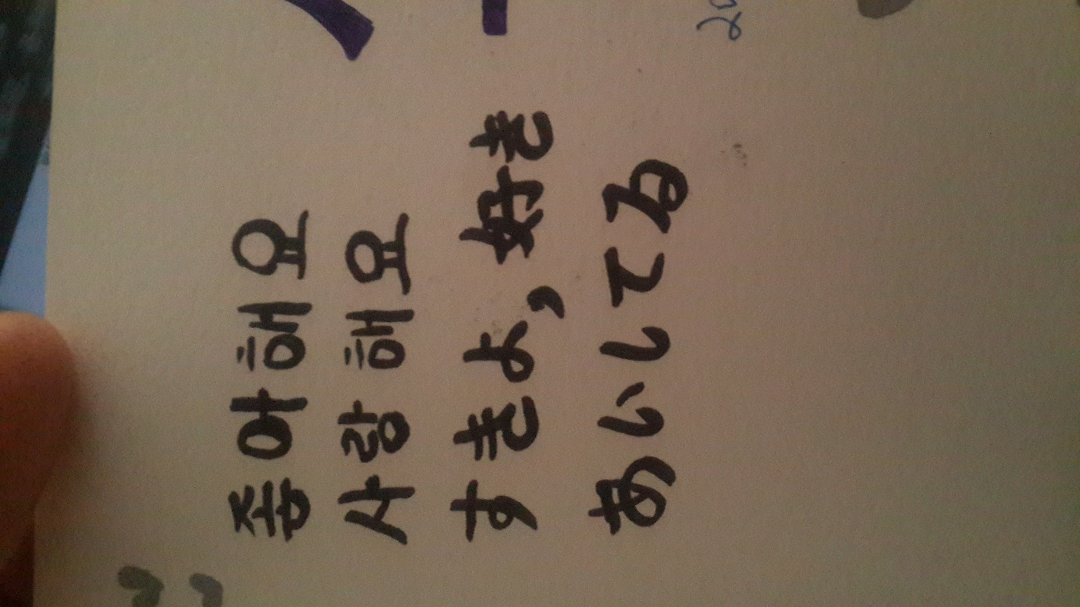 좋아해요
사랑해요
すきよ, 好き
あいしてる